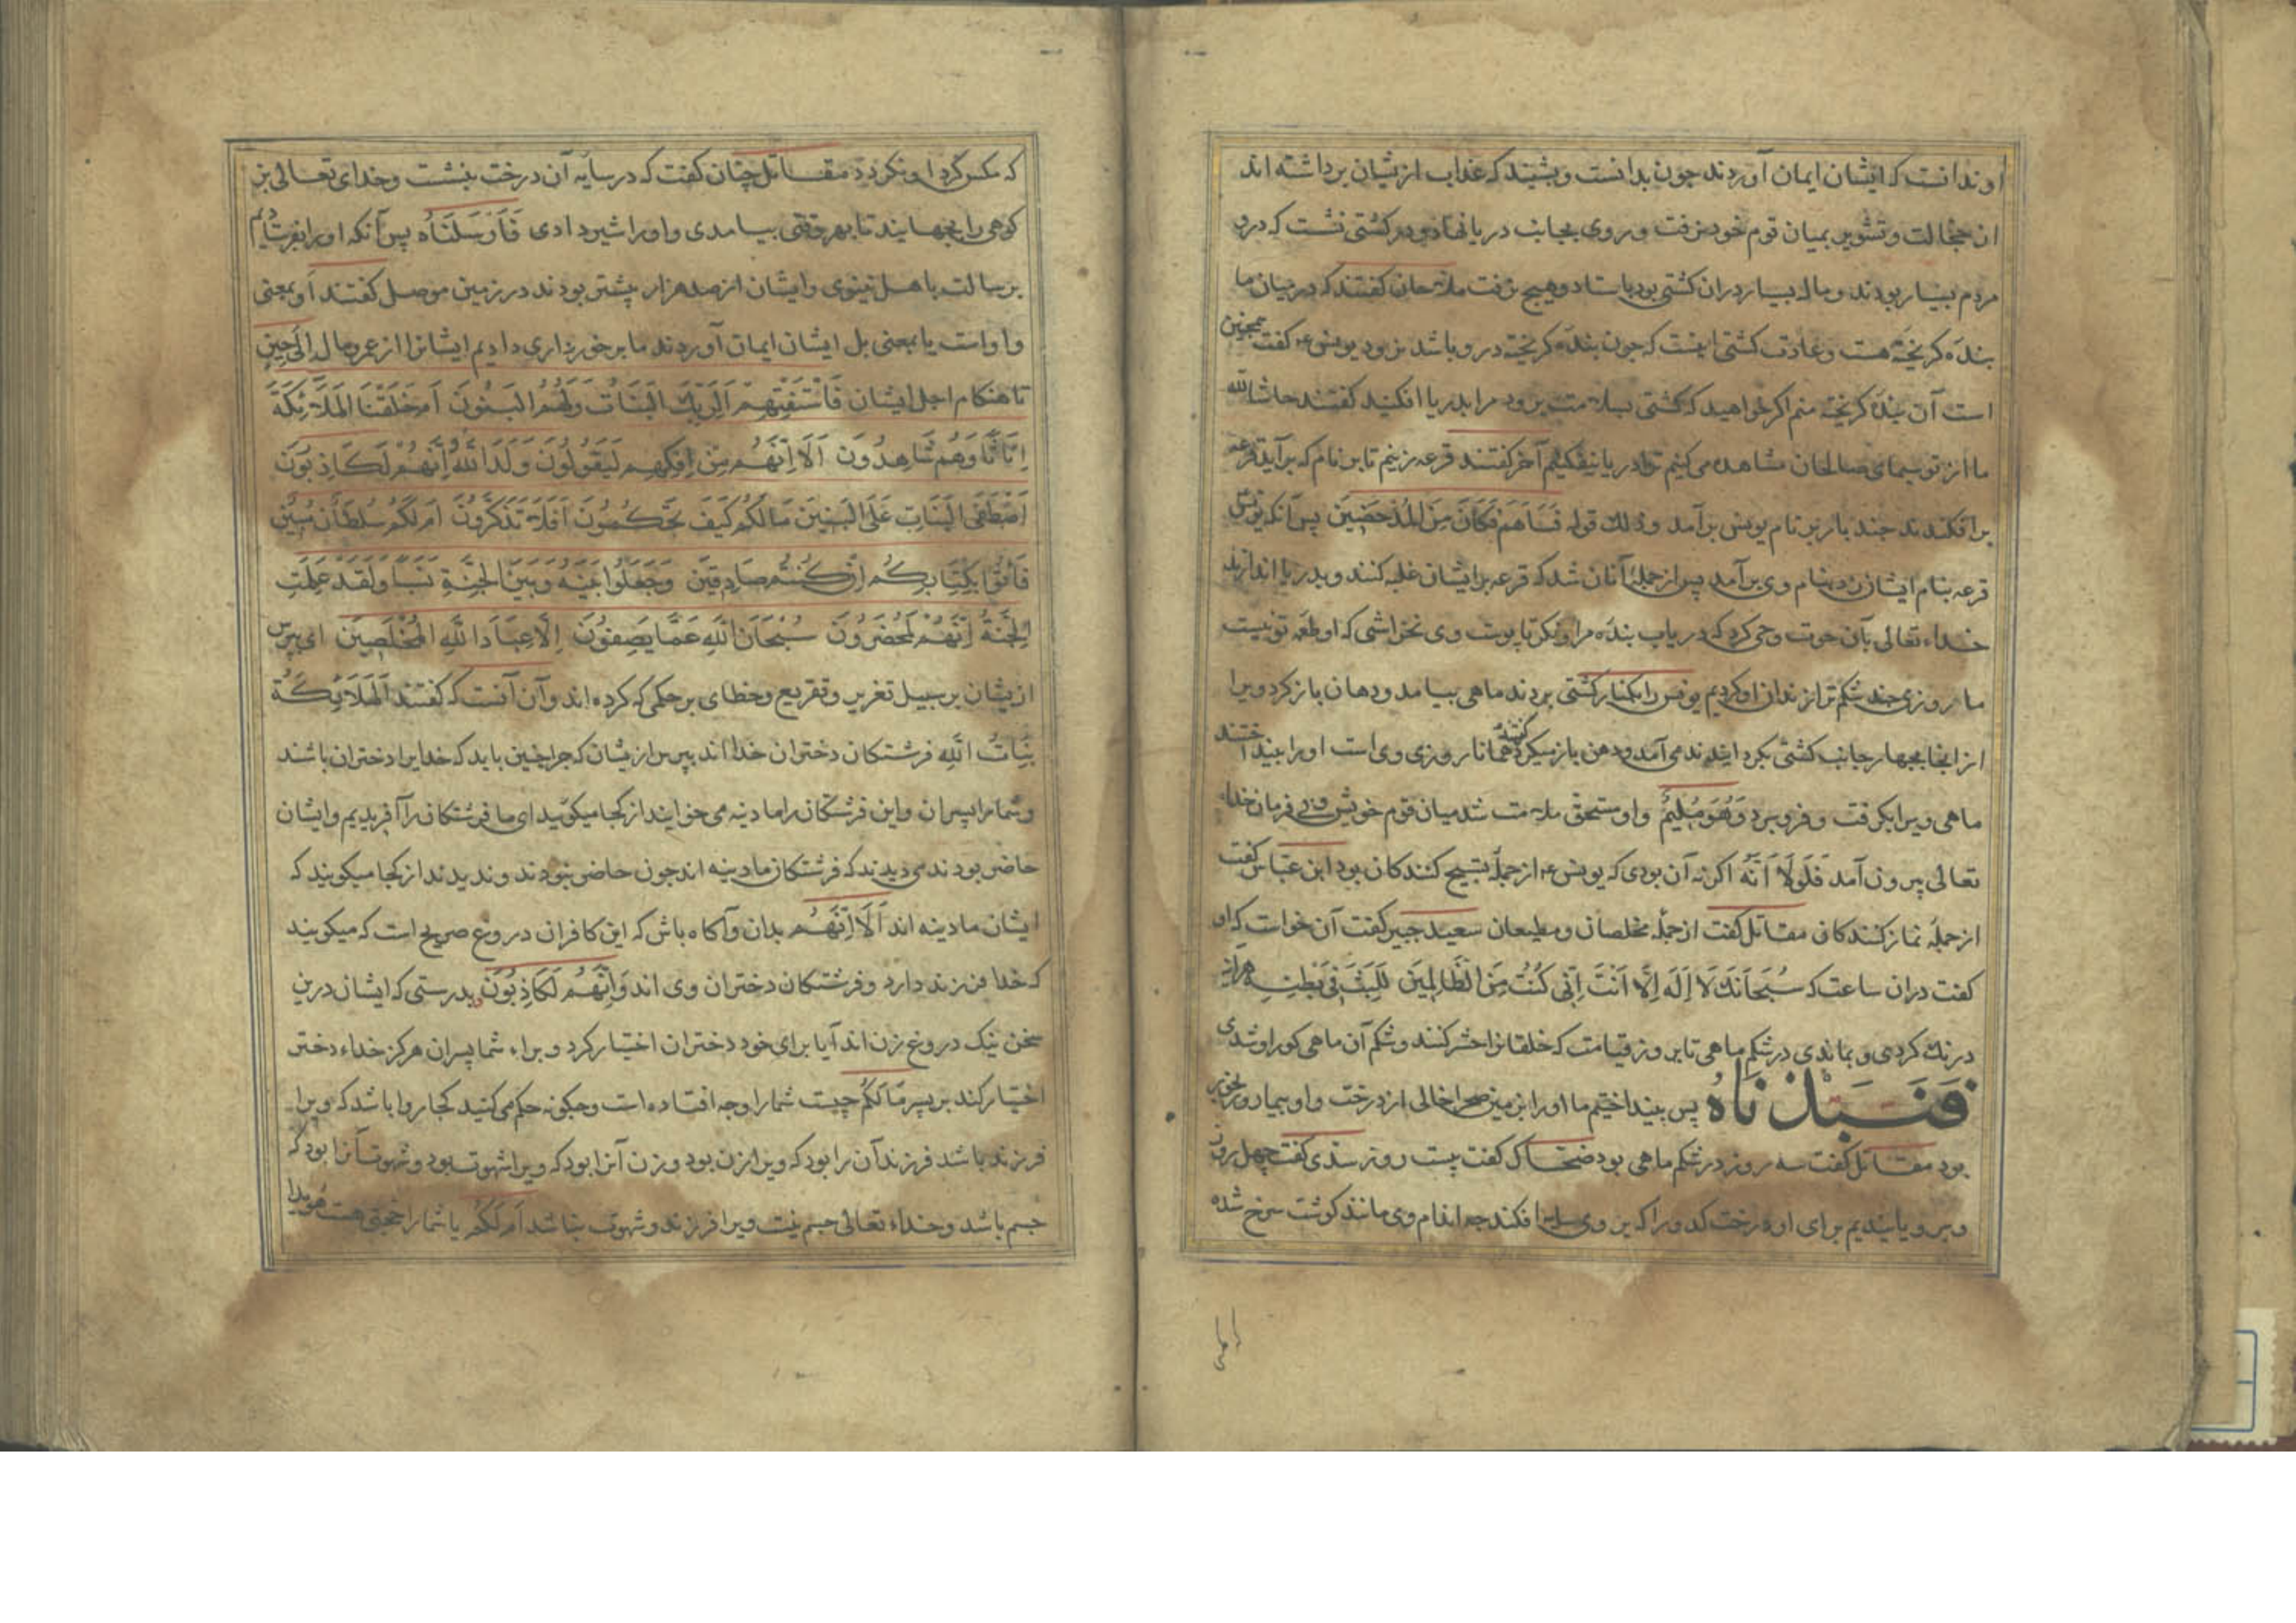 او ندانست که ایشان ایمان آوردند چون بدانست و بشنید که عذاب ازیشان برداشته اند
از خجالت و تشویر بمیان قوم خود نرفت و روی بجانب دریا نهاد و در کشتی نشست که درو
مردم بسیار بودند و مال بسیار دران کشتی بود باستاد و هیچ نرفت ملاحان کفتند که در میان ما
بنده کریخته هست و عادت کشتی اینست که چون بنده کریخته درو باشد نرود یونس ع کفت همچنین
است آن بنده کریخته منم اکر خواهید که کشتی بسلامت برود مرا بدریا افکنید کفتند حاشا لله
ما از تو سیمای صالحان مشاهده می کنیم ترا در یا نیفکنیم آخر کفتند قرعه بزنیم تا بر نام که برآید قرعه
برافکندند چند بار بر نام یونس برآمد و ذلك قوله فَسَاهَمَ فَكَانَ مِنَ المُدْحَضِينَ پس آنکه یونس
قرعه بنام ایشان زد بنام وی برآمد پس از جمله آنان شد که قرعه برایشان غلبه کنند و بدریا اندازند
خداء تعالی بآن حوت وحی کرد که دریاب بنده مرا و نکر تا پوست وی نخراشی که او طعمه تو نیست
ما روزی چند شکم ترا زندان او کردیم یونس را بکنار کشتی بردند ماهی بیامد و دهان باز کرد ویرا
از انجا بچهار جانب کشتی بکردانیدند می آمد و دهن باز میکرد کفتند همانا روزی وی است او را بینداختند
ماهی ویرا بکرفت و فرو برد وَهُوَ مُلِيمٌ و او مستحق ملامت شد میان قوم خویش و بی فرمان خداء
تعالی بیرون آمد فَلَوْلَا أَنَّهُ اکر نه آن بودی که یونس ع از جمله تسبیح کنندکان بود ابن عباس کفت
از جمله نماز کنندکان مقاتل کفت از جمله مخلصان و مطیعان سعید جبیر کفت آن خواست که او
کفت دران ساعت که سُبْحَانَكَ لَا إِلَهَ إِلَّا أَنْتَ إِنِّي كُنْتُ مِنَ الظَّالِمِينَ لَلَبِثَ فِي بَطْنِهِ هرآینه
درنك کردی و بماندی در شکم ماهی تا بروز قیامت که خلقانرا حشر کنند و شکم آن ماهی کور او شدی
فَنَبَذْنَاهُ پس بینداختیم ما او را بزمین صحرا خالی از درخت و او بیمار و رنجور
بود مقاتل کفت سه روز در شکم ماهی بود ضحاك کفت بیست روز سدی کفت چهل روز
و برویانیدیم برای او درخت کدو را که بر وی سایه افکند چه اندام وی مانند کوشت سرخ شده
که مکس کرد او نکردد مقاتل چنان کفت که در سایه آن درخت بنشست و خدای تعالی بز
کوهی را بجهانید تا بهر وقتی بیامدی و او را شیر دادی فَأَرْسَلْنَاهُ پس آنکه او را بفرستادیم
برسالت باهل نینوی و ایشان از صد هزار بیشتر بودند در زمین موصل کفتند او بمعنی
واو است یا بمعنی بل ایشان ایمان آوردند ما برخورداری دادیم ایشانرا از عمر و مال إِلَى حِينٍ
تا هنکام اجل ایشان فَاسْتَفْتِهِمْ أَلِرَبِّكَ البَنَاتُ وَلَهُمُ البَنُونَ أَمْ خَلَقْنَا المَلَائِكَةَ
إِنَاثًا وَهُمْ شَاهِدُونَ أَلَا إِنَّهُمْ مِنْ إِفْكِهِمْ لَيَقُولُونَ وَلَدَ اللهُ وَإِنَّهُمْ لَكَاذِبُونَ
أَصْطَفَى البَنَاتِ عَلَى البَنِينَ مَا لَكُمْ كَيْفَ تَحْكُمُونَ أَفَلَا تَذَكَّرُونَ أَمْ لَكُمْ سُلْطَانٌ مُبِينٌ
فَأْتُوا بِكِتَابِكُمْ إِنْ كُنْتُمْ صَادِقِينَ وَجَعَلُوا بَيْنَهُ وَبَيْنَ الجِنَّةِ نَسَبًا وَلَقَدْ عَلِمَتِ
الجِنَّةُ إِنَّهُمْ لَمُحْضَرُونَ سُبْحَانَ اللهِ عَمَّا يَصِفُونَ إِلَّا عِبَادَ اللهِ المُخْلَصِينَ ای بپرس
ازیشان بر سبیل تغریر و تقریع و خطای بر حکمی که کرده اند و آن آنست که کفتند المَلَائِكَةُ
بَنَاتُ اللهِ فرشتکان دختران خدا اند بپرس ازیشان که چرا چنین باید که خدایرا دختران باشند
و شما را پسران و این فرشتکان را مادینه می خوانید از کجا میکویید ای ما فرشتکان را آفریدیم و ایشان
حاضر بودند می دیدند که فرشتکان مادینه اند چون حاضر نبودند و ندیدند از کجا میکویند که
ایشان مادینه اند أَلَا إِنَّهُمْ بدان و آکاه باش که این کافران دروغ صریح است که میکویند
که خدا فرزند دارد و فرشتکان دختران وی اند وَإِنَّهُمْ لَكَاذِبُونَ بدرستی که ایشان درین
سخن نیك دروغ زن اند آیا برای خود دختران اختیار کرد و براء شما پسران هرکز خداء دختر
اختیار کند بر پسر مَا لَكُمْ چیست شما را و چه افتاده است و چکونه حکم می کنید کجا روا باشد که ویرا
فرزند باشد فرزند آن را بود که ویرا زن بود و زن آنرا بود که ویرا شهوت بود و شهوت آنرا بود که
جسم باشد و خداء تعالی جسم نیست ویرا فرزند و شهوت نباشد أَمْ لَكُمْ یا شما را حجتی هست هویدا